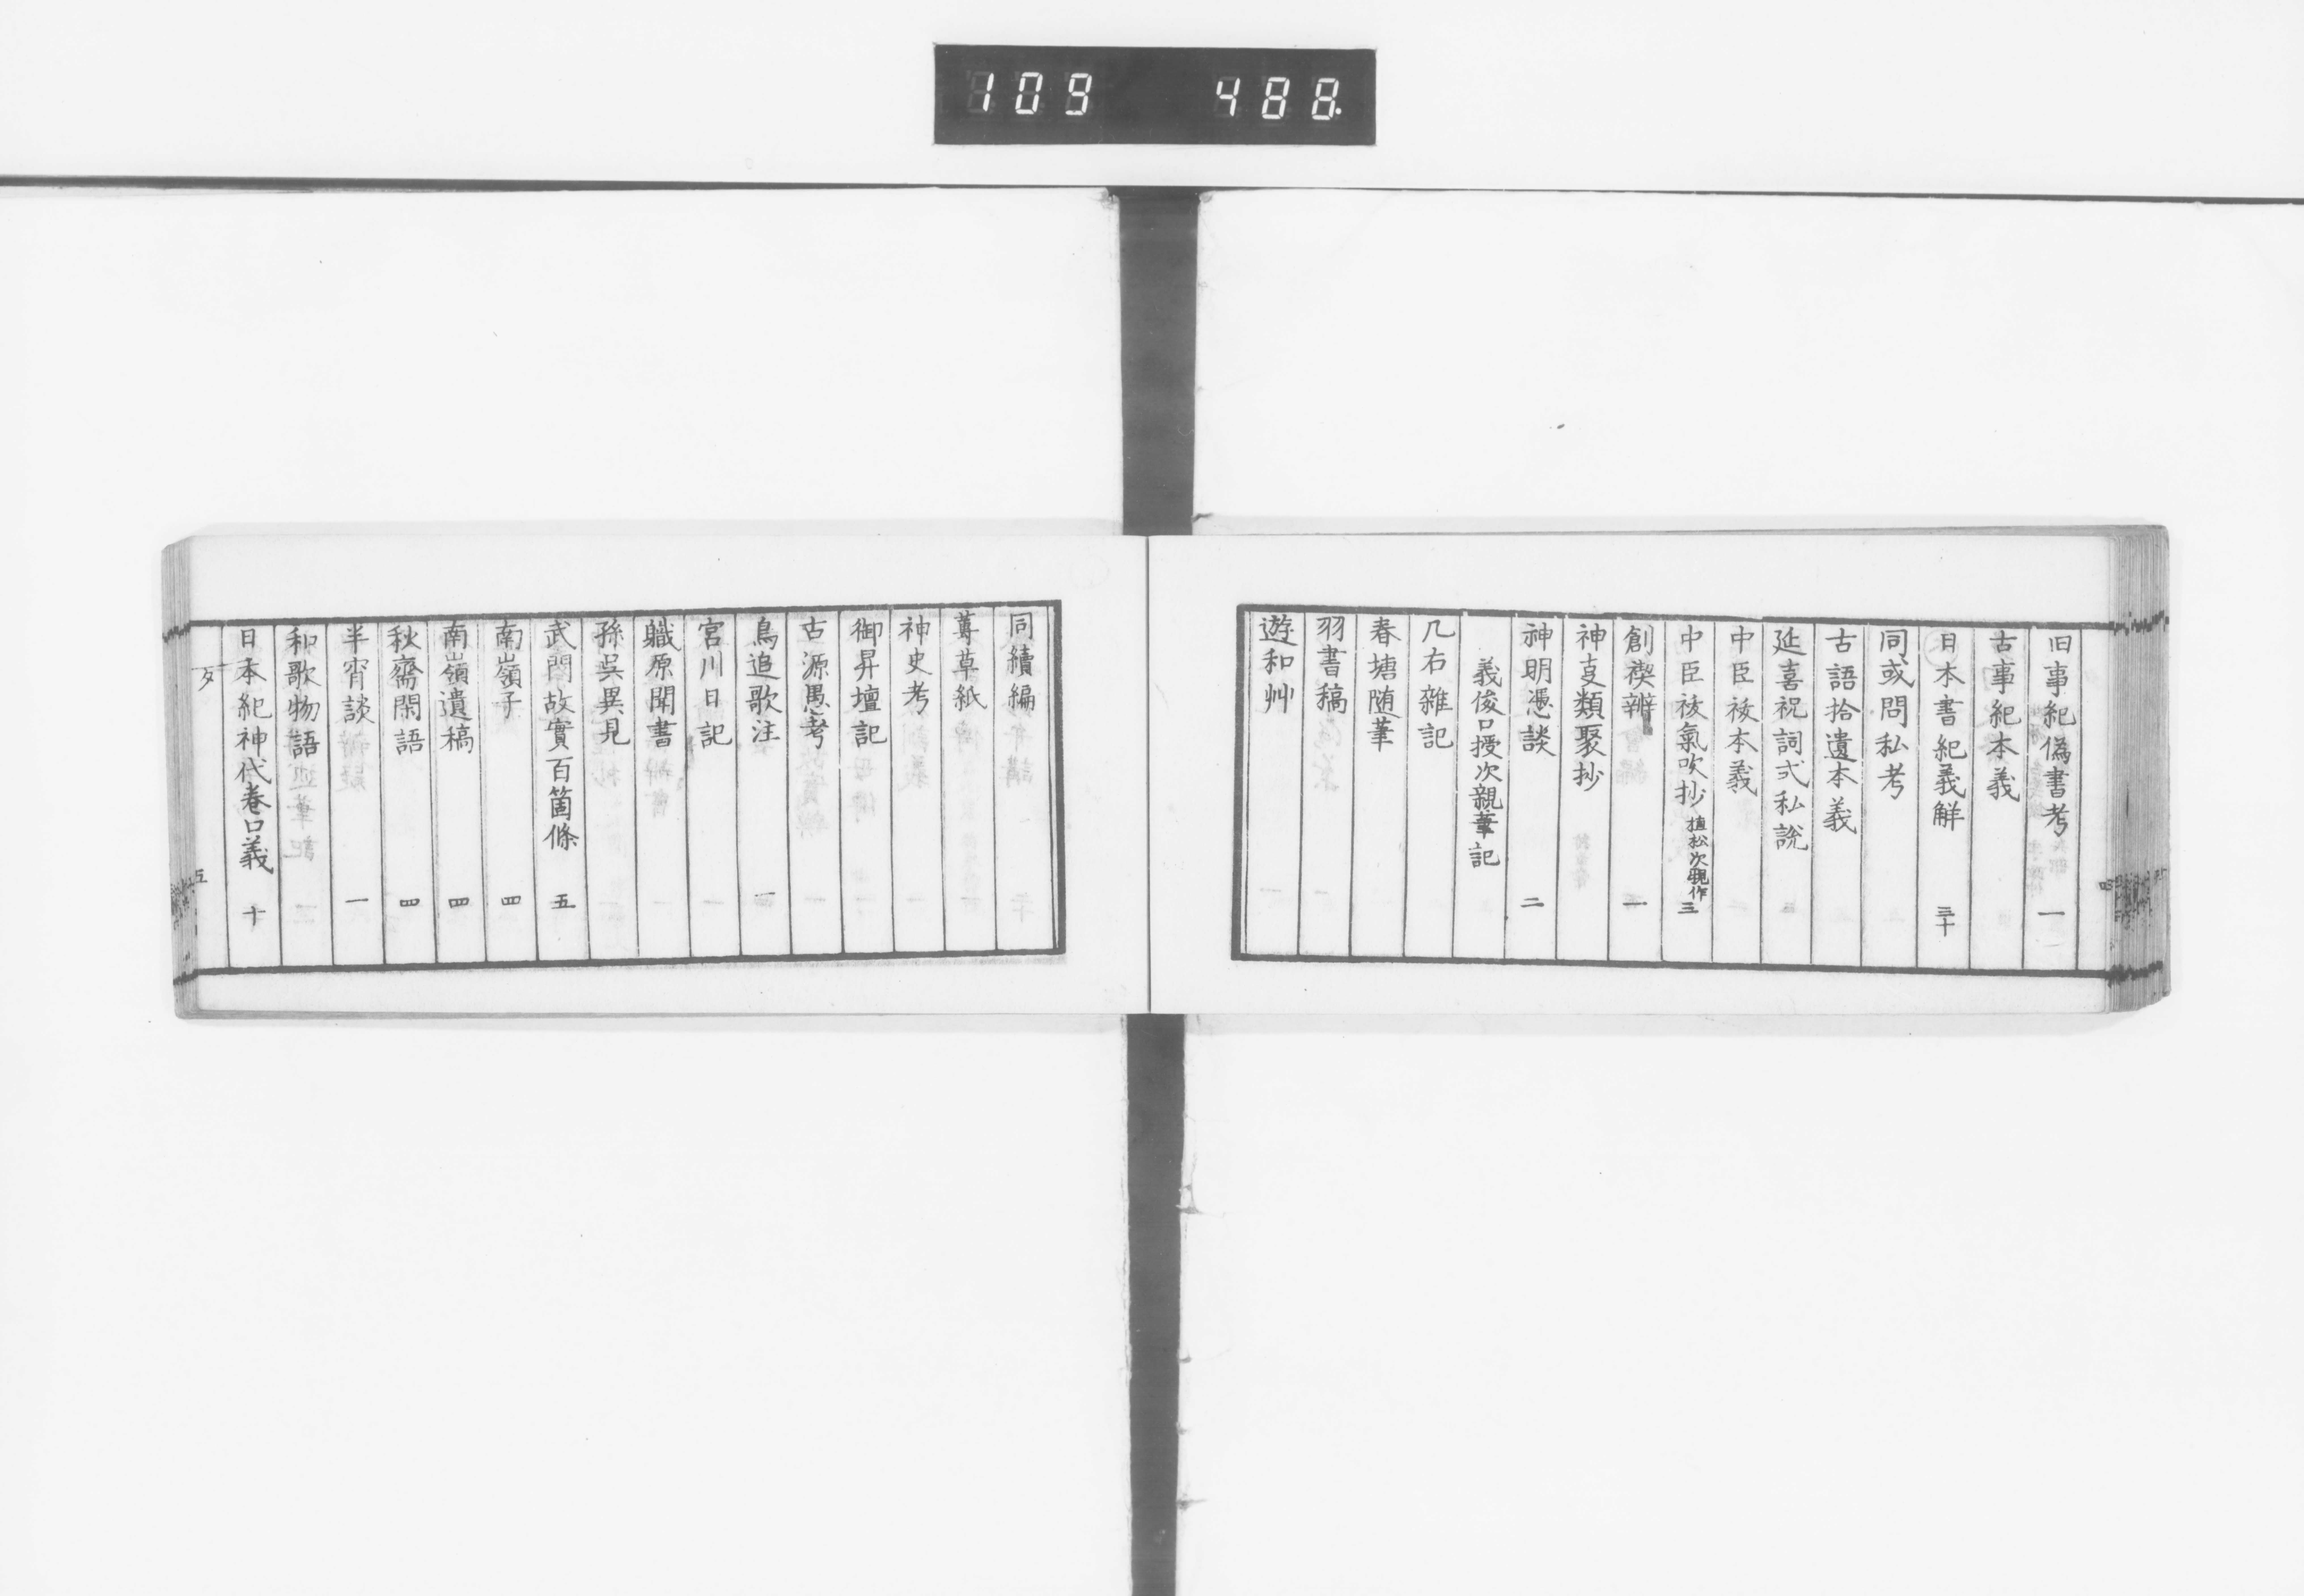 109 488
旧事紀偽書考 一
古事紀本義
日本書紀義解 三十
同或問私考
古語拾遺本義
延喜祝詞式私説
中臣祓本義
中臣祓氣吹抄 植松次親作 三
創禊辨 一
神㕝類聚抄
神明憑談 二
義俊口授次親筆記
几右雜記
春塘随筆
羽書稿
遊和艸
同續編
蓴草紙
神史考
御昇壇記
古源愚考
鳥追歌注 一
宮川日記
職原聞書
孫呉異見
武門故實百箇條 五
南嶺子 四
南嶺遺稿 四
秋齋閑語 四
半宵談 一
和歌物語
日本紀神代巻口義 十